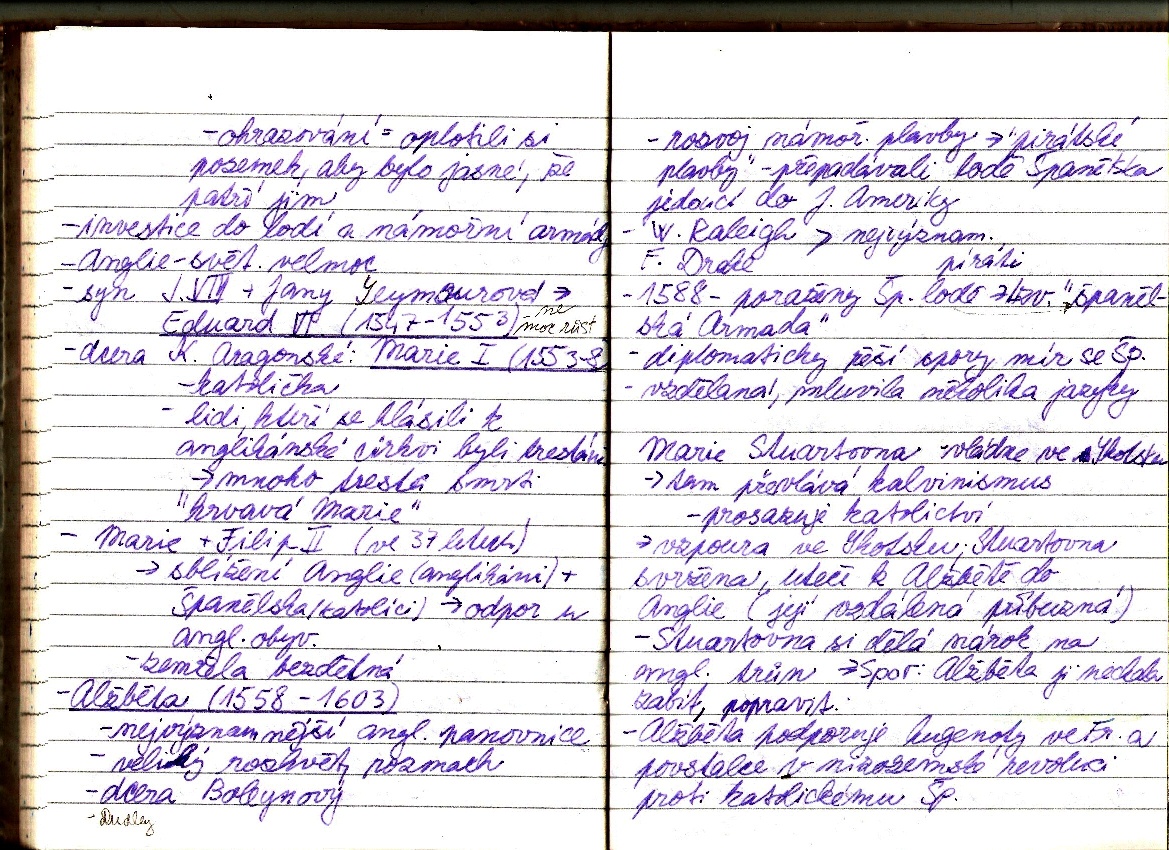 - ohrazování = oplotili si
pozemek, aby bylo jasné, že
patří jim
- investice do lodí a námořní armády
- Anglie - svět. velmoc
- syn J. VIII + Jany Seymourové →
Eduard VI (1547-1553) - ne
moc růst
- dcera K. Aragonské: Marie I (1553-8
- katolička
- lidi, kteří se hlásili k
anglikánské církvi byli trestáni
→ mnoho trestů smrti
"krvavá Marie"
- Marie + Filip II (ve 37 letech)
→ sblížení Anglie (anglikáni) +
Španělska (katolíci) → odpor u
angl. obyv.
- zemřela bezdětná
- Alžběta (1558 - 1603)
- nejvýznamnější angl. panovnice
- veliký rozkvět, rozmach
- dcera Boleynový
- Dudley
- rozvoj námoř. plavby → "pirátské
plavby" - přepadávali lodě Španělska
jedoucí do J. Ameriky
- W. Raleigh > nejvýznam.
F. Drake piráti
- 1588 - poraženy Šp. lodě → tzv. "Španěl-
ská Armada"
- diplomaticky řeší spory, mír se Šp.
- vzdělaná, mluvila několika jazyky
Marie Stuartovna - vládne ve Skotsku
→ tam převládá kalvinismus
- prosazuje katolictví
→ vzpoura ve Skotsku; Stuartovna
svržena, uteče k Alžbětě do
Anglie (její vzdálená příbuzná)
- Stuartovna si dělá nárok na
angl. trůn → Spor: Alžběta ji nechala
zabít, popravit.
- Alžběta podporuje hugenoty ve Fr. a
povstalce v nizozemské revoluci
proti katolickému Šp.